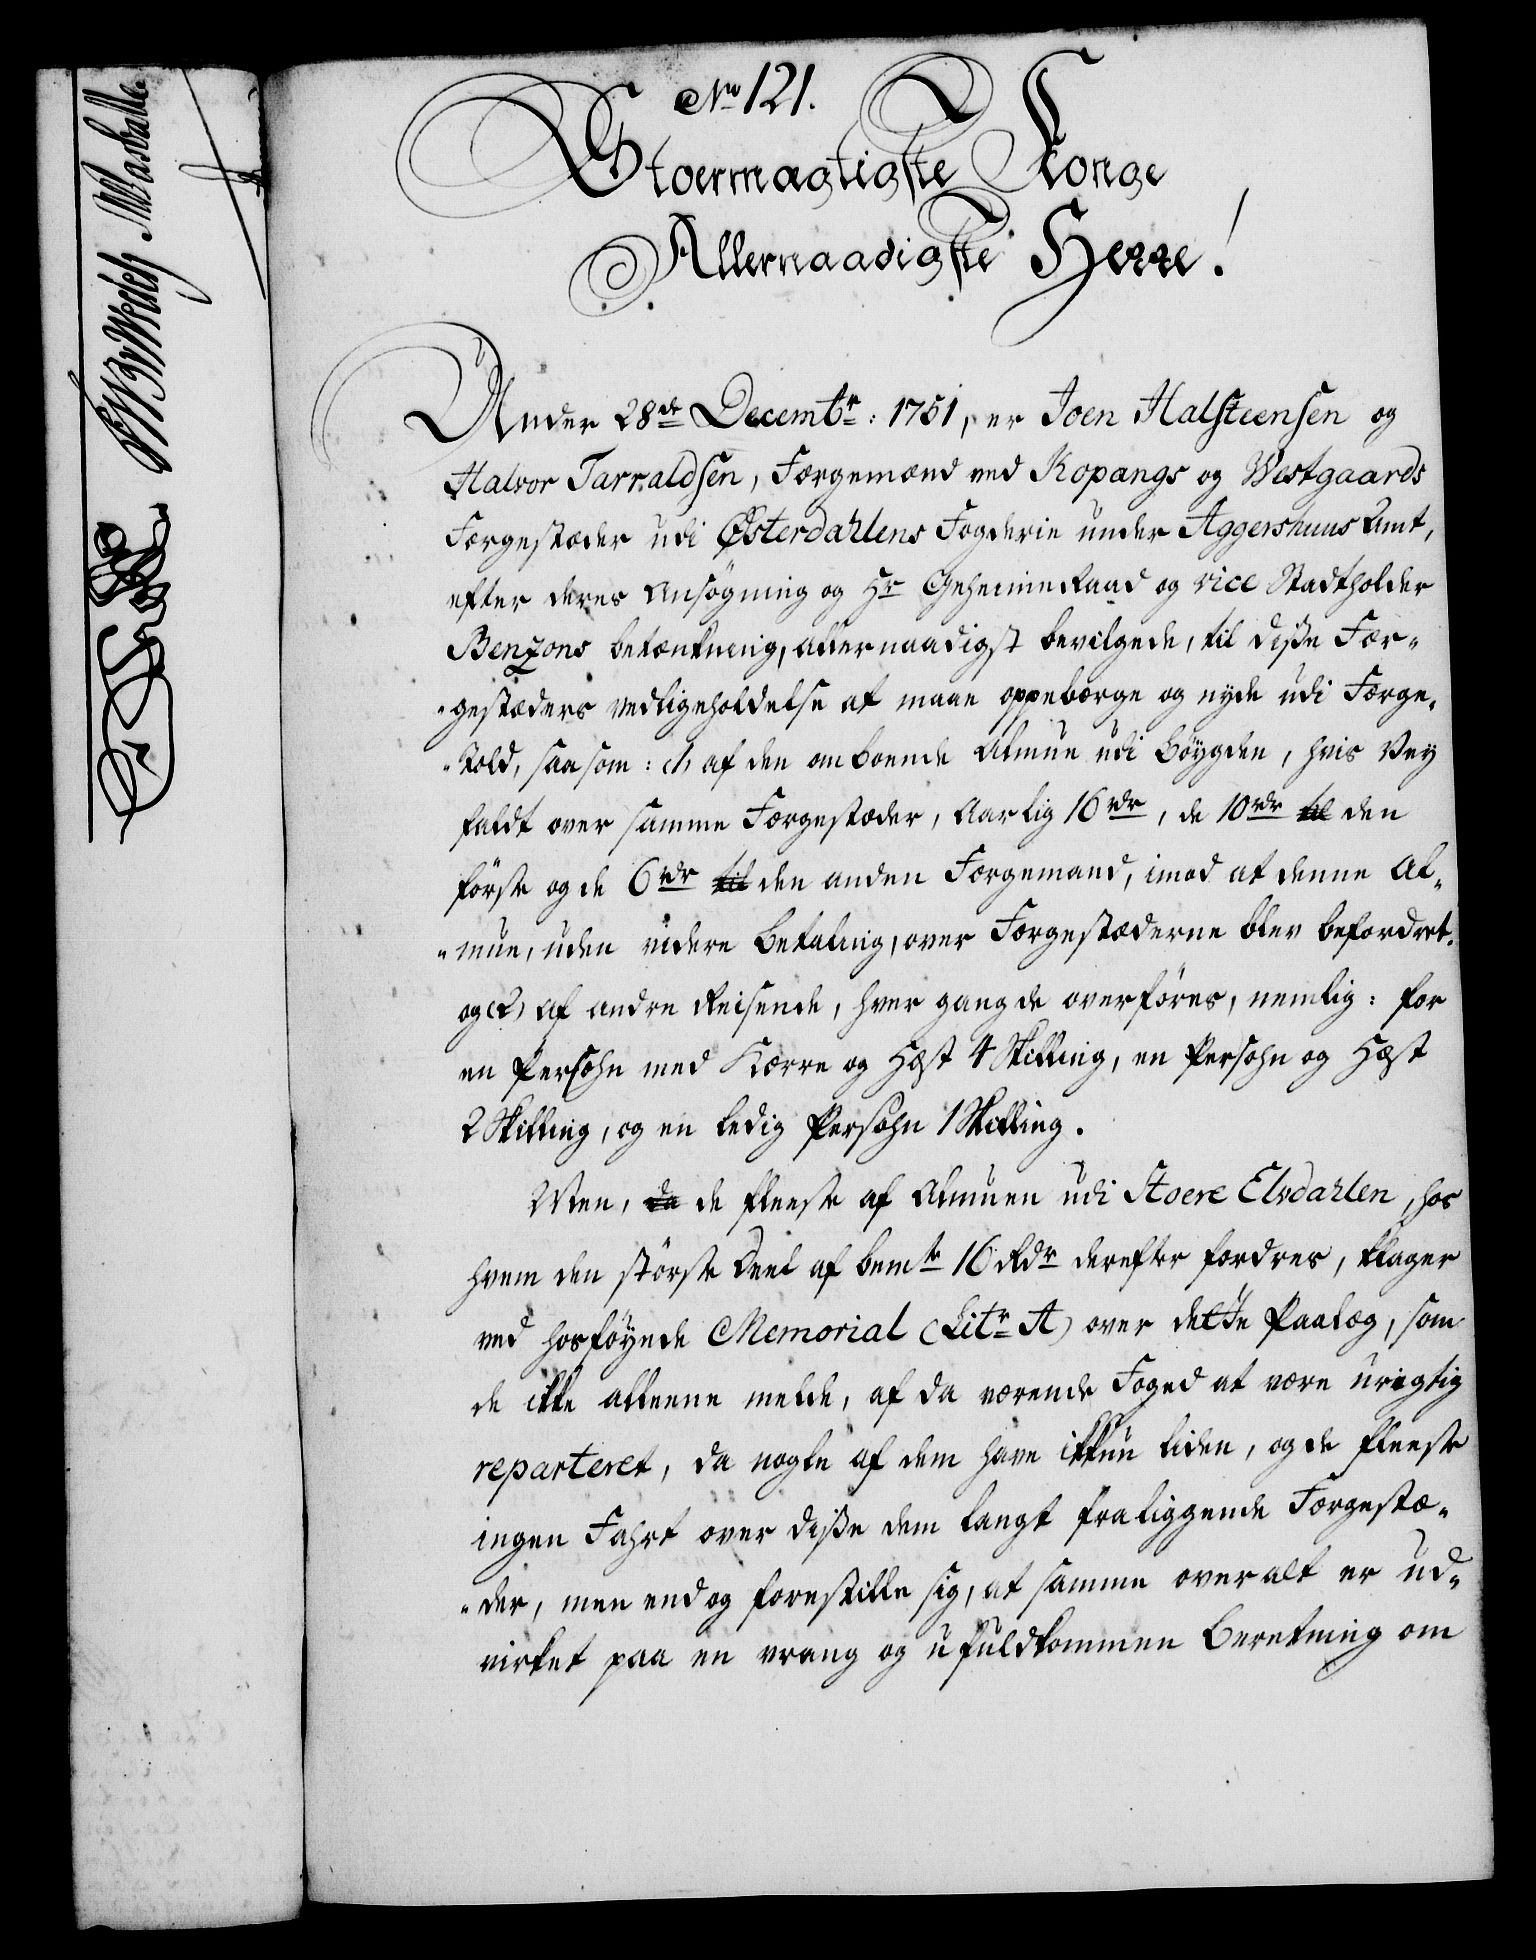 No 121.
Stoermægtigste Konge
Allernaadigste Herre!
Under 28de Decembr: 1751, er Joen Halsteensen og
Halvor Tarraldsen, Færgemænd ved Kopangs og Westgaards
Færgestæder udi Østerdahlens Fogderie under Aggershuus Amt,
efter deres Ansøgning og Hr GeheimeRaad og vice Stadtholder
Benzons betænkning, allernaadigst bevilgede, til disse Fær-
-gestæders vedligeholdelse at maae oppebærge og nyde udi Færge-
-Told, saasom: 1) af den omboende Almue udi Bøygden, hvis Vey
faldt over samme Færgestæder, Aarlig 16 rdr, de 10 rdr til den
første og de 6 rdr til den anden Færgemand, imod at denne Al-
-mue, uden videre betaling, over Færgestæderne blev befordret.
og (2) af andre Reisende, hver gang de overføres, nemlig: for
en Persohn med Kærre og Hæst 4 Skilling, en Persohn og Hæst
2 Skilling, og en ledig Persohn 1 Skilling.
Men, da de fleeste af Almuen udi Stoere Elvdahlen, hos
hvem den største Deel af bemte 16 Rdr derefter fordres, klager
ved hosføyede Memorial (Litr A) over dette Paalæg, som
de ikke alleene melde, af da værende Foged at være urigtig
reparteret, da nogle af dem have ikkun liden, og de fleeste
ingen Fahrt over disse dem langt fraliggende Færgestæ-
-der, men endog forestille sig, at samme overalt er ud-
virket paa en vrang og ufuldkommen Beretning om